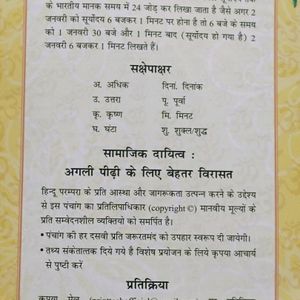 के भारतीय मानक समय में 24 जोड़ कर लिखा जाता है जैसे अगर 2
जनवरी को सूर्योदय 6 बजकर 1 मिनट पर होना है तो 6 बजे के समय
को 1 जनवरी 30 बजे और 1 मिनट बाद (सूर्योदय हो गया है) 2
जनवरी 6 बजकर 1 मिनट लिखते हैं।
सक्षेपाक्षर
अ. अधिक दिनां. दिनांक
उ. उत्तरा पू. पूर्वा
कृ. कृष्ण मि. मिनट
घ. घंटा शु. शुक्ल/शुद्ध
सामाजिक दायित्व :
अगली पीढ़ी के लिए बेहतर विरासत
हिन्दू परम्परा के प्रति आस्था और जागरूकता उत्पन्न करने के उद्देश्य
से इस पंचांग का प्रतिलिपाधिकार (copyright ©) मानवीय मूल्यों के
प्रति सम्वेदनशील व्यक्तियों को समर्पित है।
• पंचांग की हर दसवी प्रति जरूरतमंद को उपहार स्वरूप दी जायेगी।
• तथ्य संकेतात्मक दिये गये हैं विशेष प्रयोजन के लिये कृपया आचार्य
से पुष्टी करें
प्रतिक्रिया
कृपया मेल